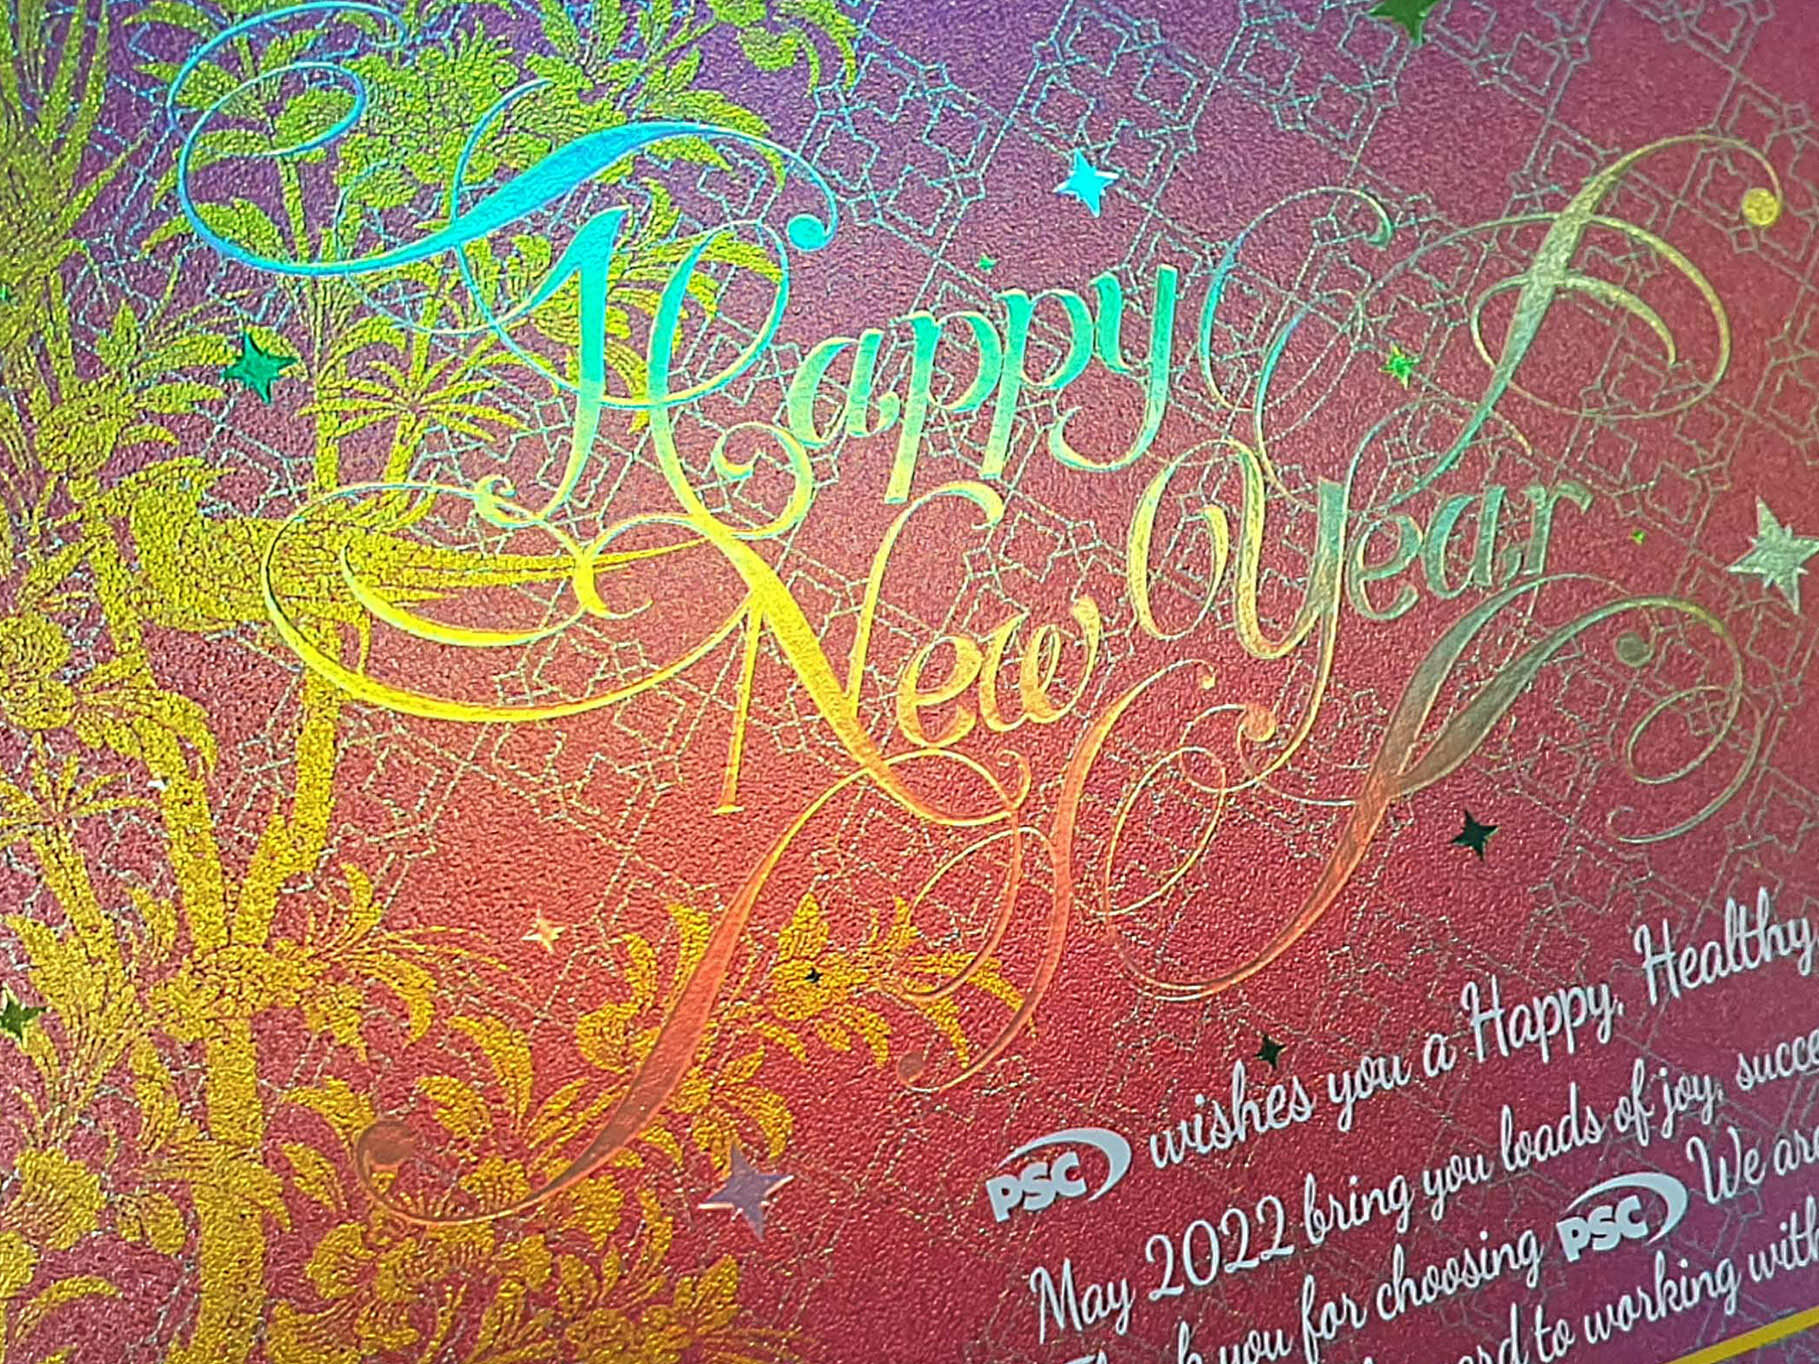 Happy
New Year
PSC wishes you a Happy, Healthy
May 2022 bring you loads of joy, succe
you for choosing PSC We are
to working with